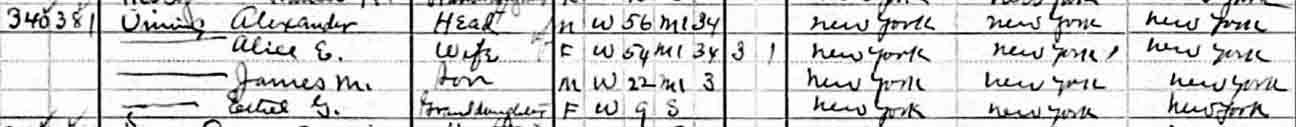 340 381 Alexander Head M W 56 M1 34 New York New York New York
Alice E. Wife F W 54 M1 34 3 1 New York New York New York
James M. Son M W 22 M1 3 New York New York New York
Ethel G. Granddaughter F W 9 S New York New York New York